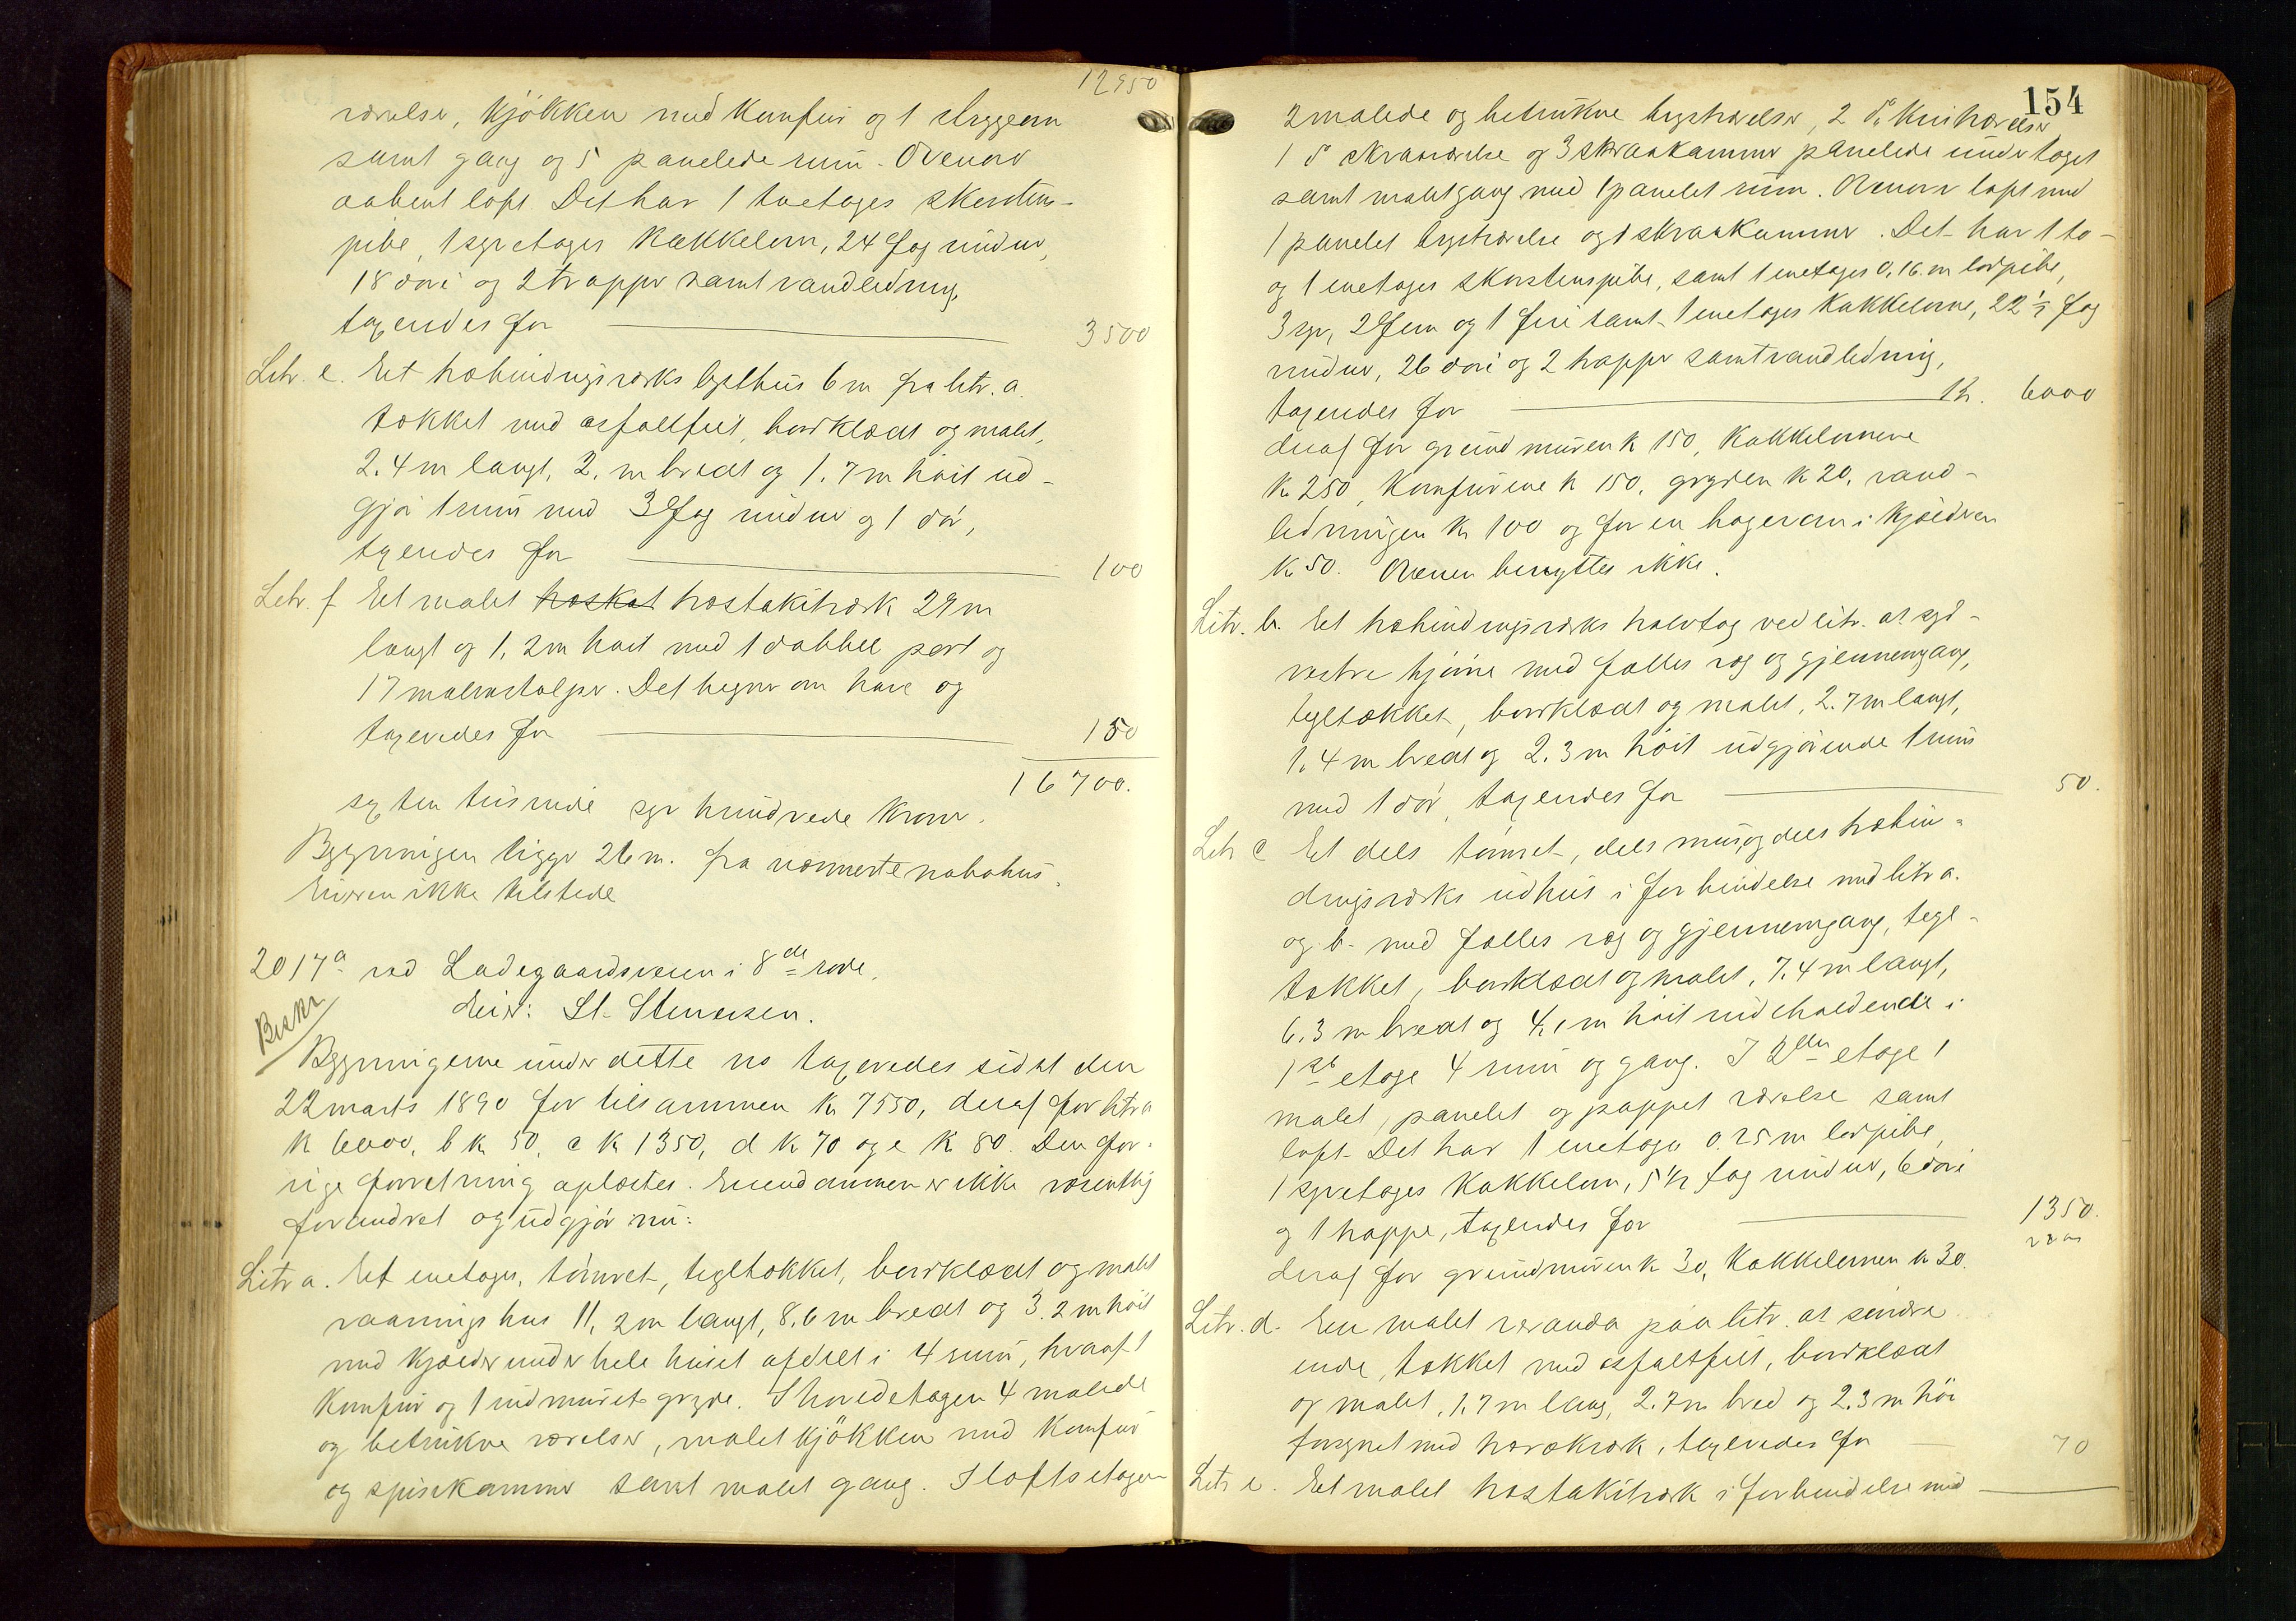 12950
værelse, kjøkken med komfur og 1 bryggeovn
samt gang og 5 panelede rum. Ovenover
aabent loft Det har 1 toetages skorstens-
pibe, 1 syvetages kakkelovn, 24 fag vinduer,
18 døre og 2 trapper samt vandledning,
taxeredes for 3500
Litr. e. Et træbindingsværks lysthus 6 m fra litr. a.
tækket med asfaltfilt, bordklædt og malet,
2.4 m langt, 2. m bredt og 1.7 m høit ud-
gjør 1 rum med 3 fag vinduer og 1 dør,
taxeredes for 100
Litr. f Et malet træstakitværk 29 m
langt og 1,2 m høit med 1 dobbel port og
17 malmstolper. Det hegner om have og
taxeredes for 150
16700.
sexten tusinde syv hundrede kroner.
Bygningen ligger 26 m. fra nærmeste nabohus.
Eieren ikke tilstede
2017a ved Ladegaardsveien i 8de rode.
Beskr
Eier: St. Stenersen.
Bygningerne under dette no taxeredes sidst den
22 marts 1890 for tilsammen k 7550, deraf for litr a
k 6000, b k 50, c k 1350, d k 70 og e k 80. Den for-
rige forretning oplæstes. Eiendommen er ikke væsentlig
forandret og udgjør nu:
Litr a. Et enetages, tømret, tegltækket, bordklædt og malet
vaaningshus 11,2 m langt, 8,6 m bredt og 3.2 m høit
med kjælder under hele huset afdelt i 4 rum, hvoraf 1
komfur og 1 indmuret gryde. I hovedetagen 4 malede
og betrukne værelser, malet kjøkken med komfur
og spisekammer samt malet gang. I loftsetagen
154
2 malede og betrukne kvistværelser, 2 do kvistværelser
1 do skraaværelse og 3 skraakammer panelede under taget
samt malet gang med 1 panelet rum. Ovenover loft med
1 panelet kvistværelse og 1 skraakammer. Det har 1 to-
og 1 enetages skorstenspibe, samt 1 enetages 0,16 m lerpibe,
3 syv, 2 fem og 1 fire samt 1 enetages kakkelovne, 22 1/2 fag
vinduer, 26 døre og 2 trapper samt vandledning,
taxeredes for k. 6000
deraf for grundmuren k 150, kakkelovnene
k 250, komfurene k 150, gryden k 20, vand-
ledningen k 100 og for en bagerovn i kjælderen
k 50. Ovnen benyttes ikke.
Litr. b. Et træbindingsværks halvtag ved litr. as syd-
vestre hjørne med fælles væg og gjennemgang,
tegltækket, bordklædt og malet, 2.7 m langt,
1.4 m bredt og 2.3 m høit udgjørende 1 rum
med 1 dør, taxeredes for 50.
Litr c Et dels tømret, dels mur, og dels træbin-
dingsværks udhus i forbindelse med litr a.
og b. med fælles væg og gjennemgang, tegl-
tækket, bordklædt og malet, 7.4 m langt,
6.3 m bredt og 4,1 m høit indeholdende i
1ste etage 4 rum og gang. I 2den etage 1
malet, panelet og pappet værelse samt
loft. Det har 1 enetages 0.25 m lerpibe,
1 syvetages kakkelovn, 5 1/2 fag vinduer, 6 døre
og 1 trappe, taxeredes for 1350.
deraf for grundmuren k 30, kakkelovnen k 30.
Litr. d. En malet veranda paa litr. as søndre
ende, tækket med asfaltfilt, bordklædt
og malet, 1.7 m lang, 2.7 m bred og 2.3 m høi
forsynet med trærækværk, taxeredes for 70
Litr e. Et malet træstakitværk i forbindelse med